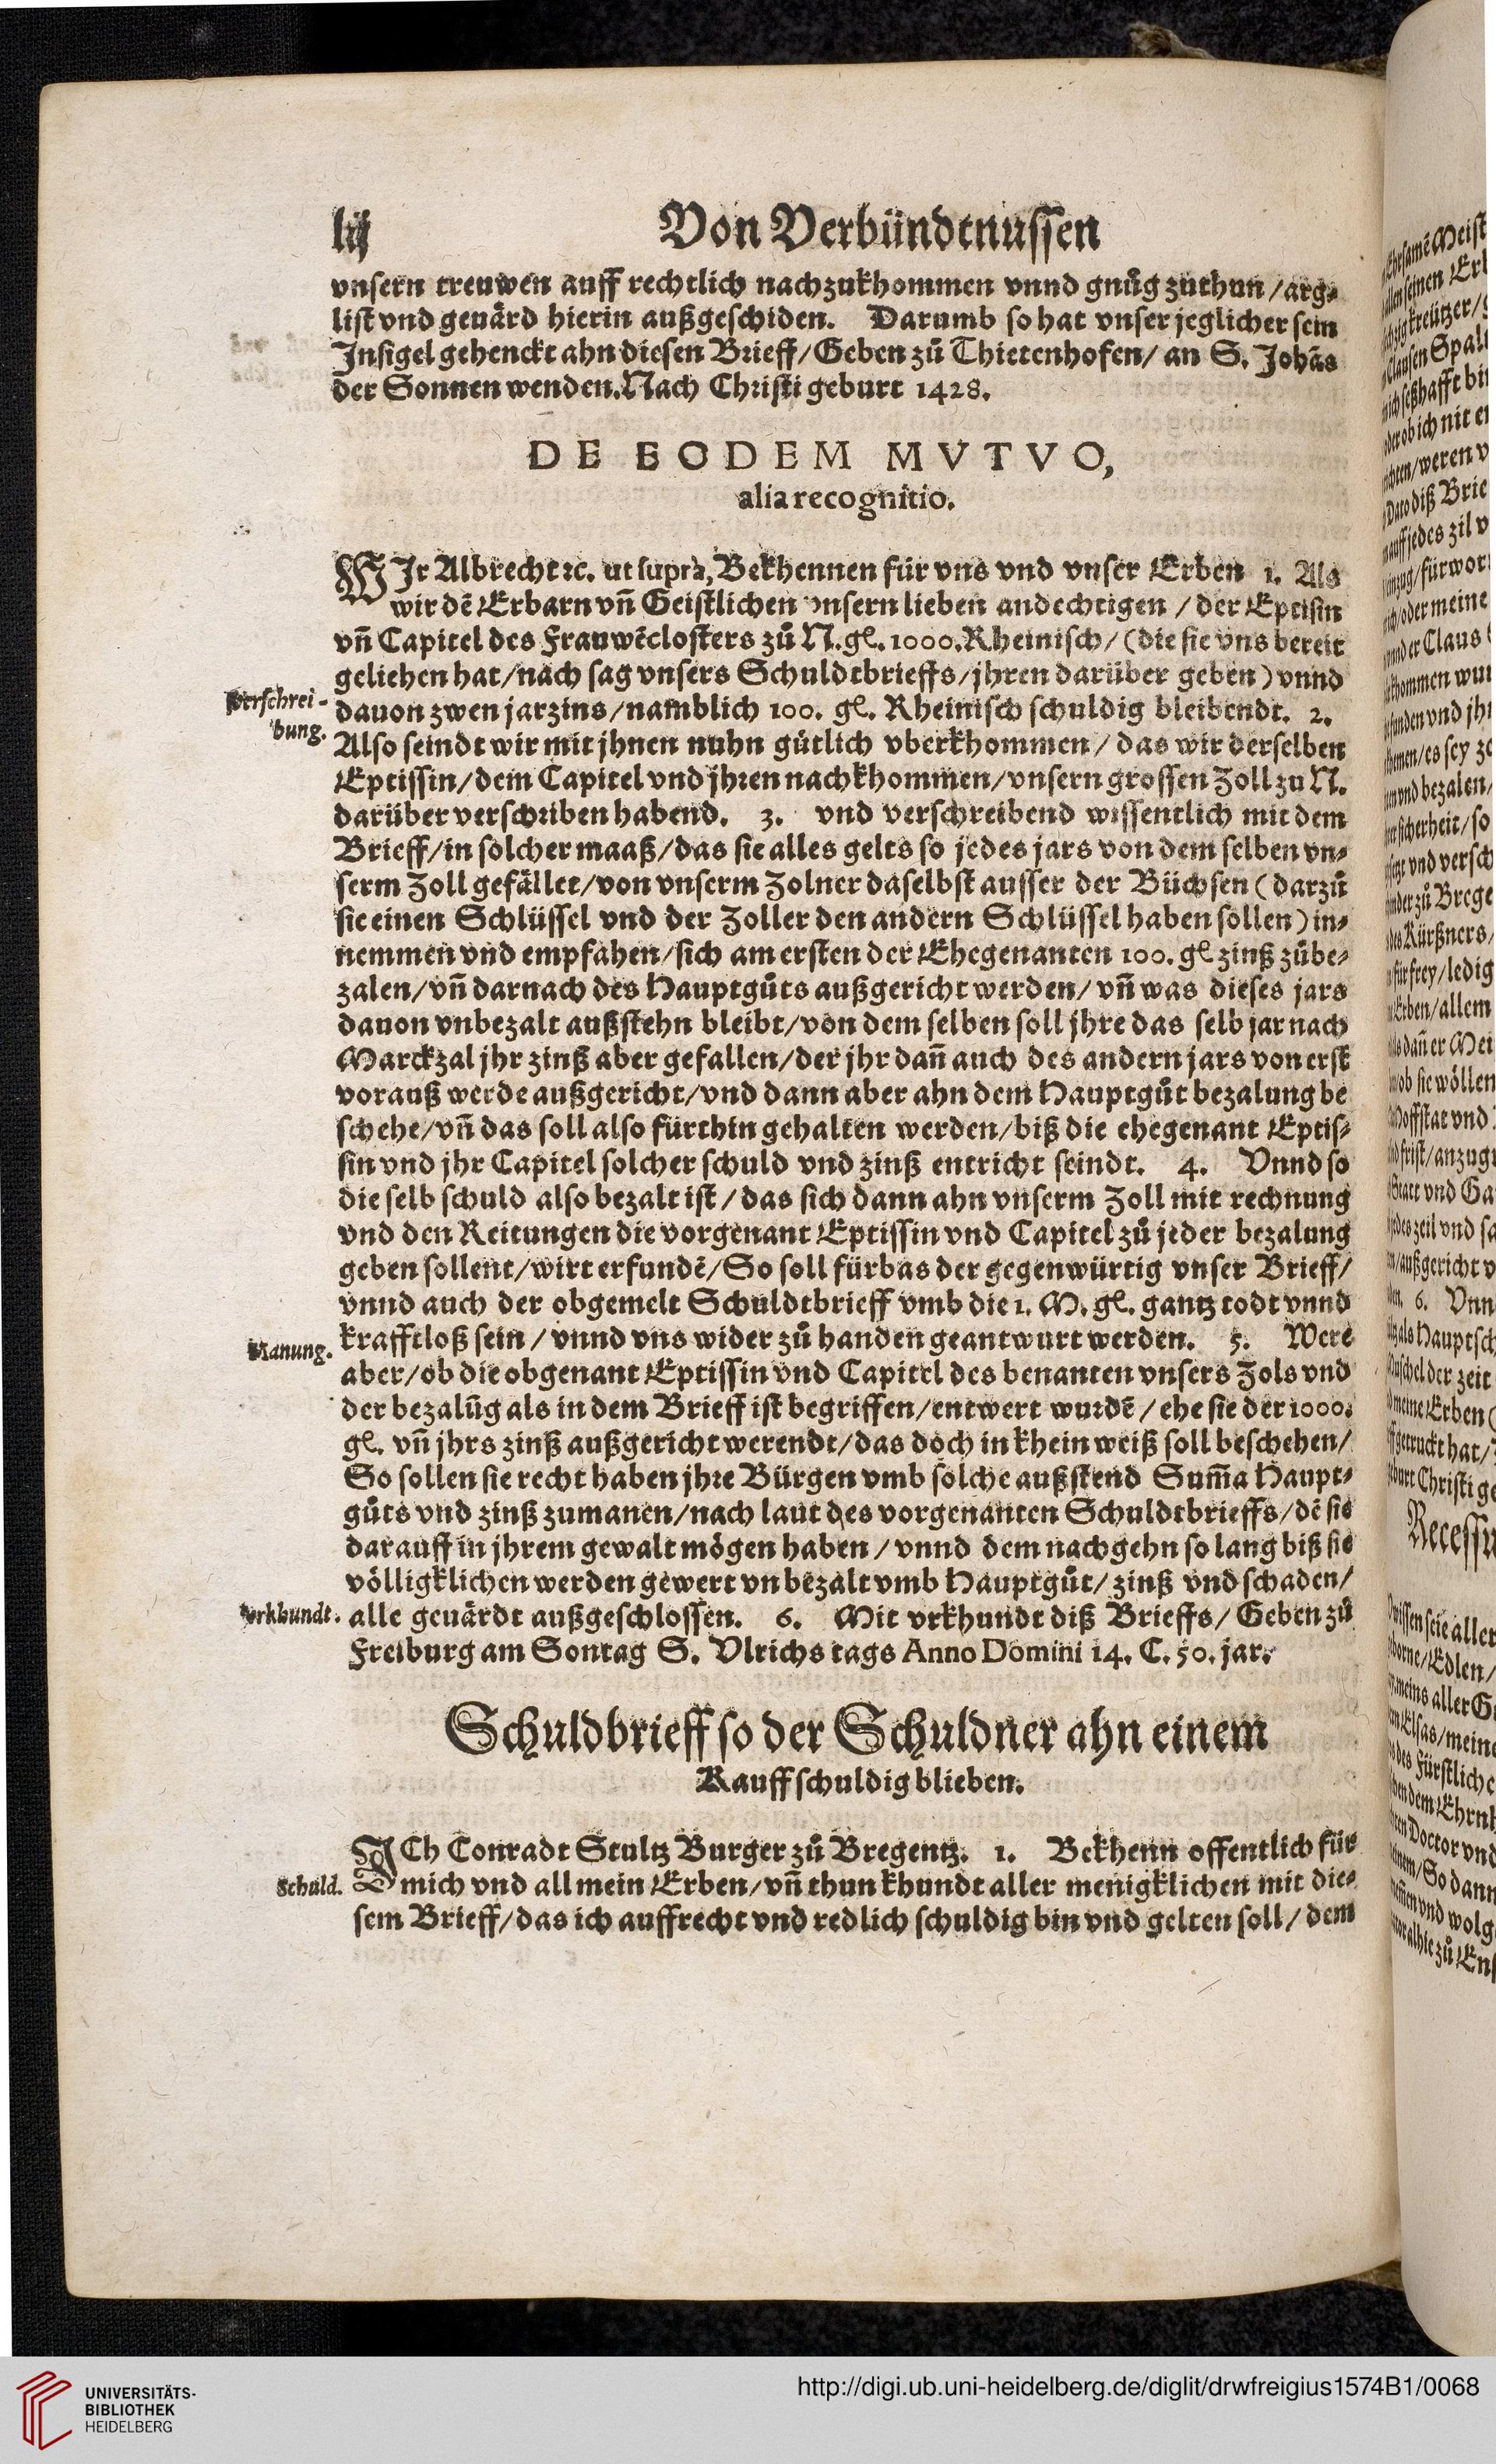 lij Von Verbündtnussen
vnsern treuwen auff rechtlich nachzukhommen vnnd gnůg zuthun / arg⸗
list vnd geuärd hierin außgeschiden. Darumb so hat vnser jeglicher sein
Insigel gehenckt ahn diesen Brieff / Geben zů Thietenhofen / an S. Johãs
der Sonnen wenden. Nach Christi geburt 1428.
DE EODEM MVTVO,
alia recognitio.
WIr Albrecht ꝛc. ut suprà, Bekhennen für vns vnd vnser Erben 1. Als
wir dẽ Erbarn vñ Geistlichen vnsern lieben andechtigen / der Eptisin
vñ Capitel des Frauwẽclosters zů N. gl. 1000. Rheinisch / (die sie vns bereit
geliehen hat / nach sag vnsers Schuldtbrieffs / jhren darüber geben) vnnd
Verschrei-
bung.
dauon zwen jarzins / namblich 100. gl. Rheinisch schuldig bleibendt. 2.
Also seindt wir mit jhnen nuhn gütlich vberkhommen / das wir derselben
Eptissin / dem Capitel vnd jhren nachkhommen / vnsern grossen Zoll zu N.
darüber verschriben habend. 3. vnd verschreibend wissentlich mit dem
Brieff / in solcher maaß / das sie alles gelts so jedes jars von dem selben vn⸗
serm Zoll gefället / von vnserm Zolner daselbst ausser der Büchsen (darzů
sie einen Schlüssel vnd der Zoller den andern Schlüssel haben sollen) in⸗
nemmen vnd empfahen / sich am ersten der Ehegenanten 100. gl zinß zůbe⸗
zalen / vñ darnach des Hauptgůts außgericht werden / vñ was dieses jars
dauon vnbezalt außstehn bleibt / von dem selben soll jhre das selb jar nach
Marckzal jhr zinß aber gefallen / der jhr dañ auch des andern jars von erst
vorauß werde außgericht / vnd dann aber ahn dem Hauptgůt bezalung be
schehe / vñ das soll also fürthin gehalten werden / biß die ehegenant Eptis⸗
sin vnd jhr Capitel solcher schuld vnd zinß entricht seindt. 4. Vnnd so
die selb schuld also bezalt ist / das sich dann ahn vnserm Zoll mit rechnung
vnd den Reitungen die vorgenant Eptissin vnd Capitel zů jeder bezalung
geben sollent / wirt erfundẽ / So soll fürbas der gegenwürtig vnser Brieff /
vnnd auch der obgemelt Schuldtbrieff vmb die 1. M. gl. gantz todt vnnd
Manung.
krafftloß sein / vnnd vns wider zů handen geantwurt werden. 5. Were
aber / ob die obgenant Eptissin vnd Capitel des benanten vnsers Zols vnd
der bezalũg als in dem Brieff ist begriffen / entwert wurdẽ / ehe sie der 1000.
gl. vñ jhrs zinß außgericht werendt / das doch in khein weiß soll beschehen /
So sollen sie recht haben jhre Bürgen vmb solche außstend Sum̃a Haupt⸗
gůts vnd zinß zumanen / nach laut des vorgenanten Schuldtbrieffs / dẽ sie
darauff in jhrem gewalt mögen haben / vnnd dem nachgehn so lang biß sie
völligklichen werden gewert vn bezalt vmb Hauptgůt / zinß vnd schaden /
vrkhundt.
alle geuärdt außgeschlossen. 6. Mit vrkhundt diß Brieffs / Geben zů
Freiburg am Sontag S. Vlrichs tags Anno Domini 14. C. 50. jar.
Schuldbrieff so der Schuldner ahn einem
Kauff schuldig blieben.
ICh Conradt Stultz Burger zů Bregentz. 1. Bekhenn offentlich für
Schuld.
mich vnd all mein Erben / vñ thun khundt aller menigklichen mit die⸗
sem Brieff / das ich auffrecht vnd redlich schuldig bin vnd gelten soll / dem
UNIVERSITÄTS-
BIBLIOTHEK
HEIDELBERG
http://digi.ub.uni-heidelberg.de/diglit/drwfreigius1574B1/0068